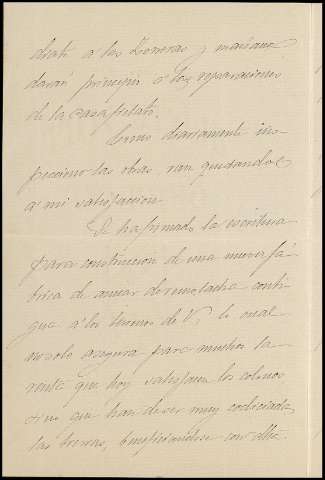 diato a las Torreras y mañana
darán principio a las reparaciones
de la casa
Como diariamente ins-
pecciono las obras, van quedando
a mi satisfaccion
Se ha firmado la escritura
para construccion de una nueva fá-
brica de azucar de remolacha conti-
gua á los terrenos de V. lo cual
no solo asegura para muchos la
renta que hoy satisfacen los colonos
sino que han de ser muy codiciadas
las tierras, beneficiandose con ella